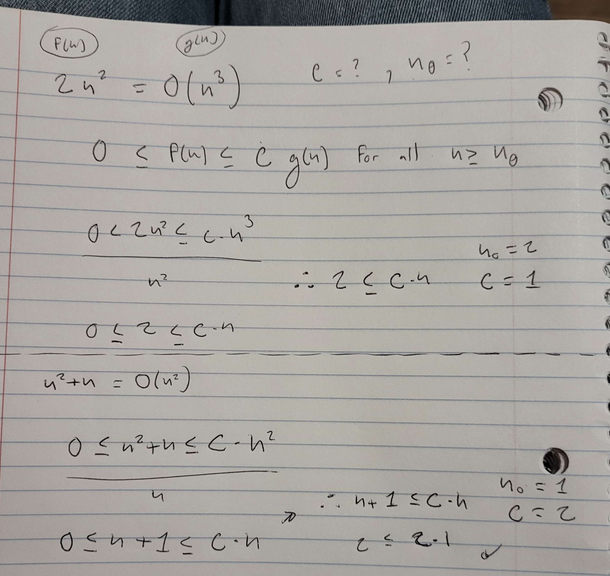 f(n) g(n)
2n² = O(n³) c = ? , n₀ = ?
0 ≤ f(n) ≤ c g(n) for all n ≥ n₀
0 < 2n² ≤ c·n³
n²
∴ 2 ≤ c·n
n₀ = 2
c = 1
0 ≤ 2 ≤ c·n
n²+n = O(n²)
0 ≤ n²+n ≤ c·n²
n
0 ≤ n+1 ≤ c·n
∴ n+1 ≤ c·n
2 ≤ 2·1 ✓
n₀ = 1
c = 2